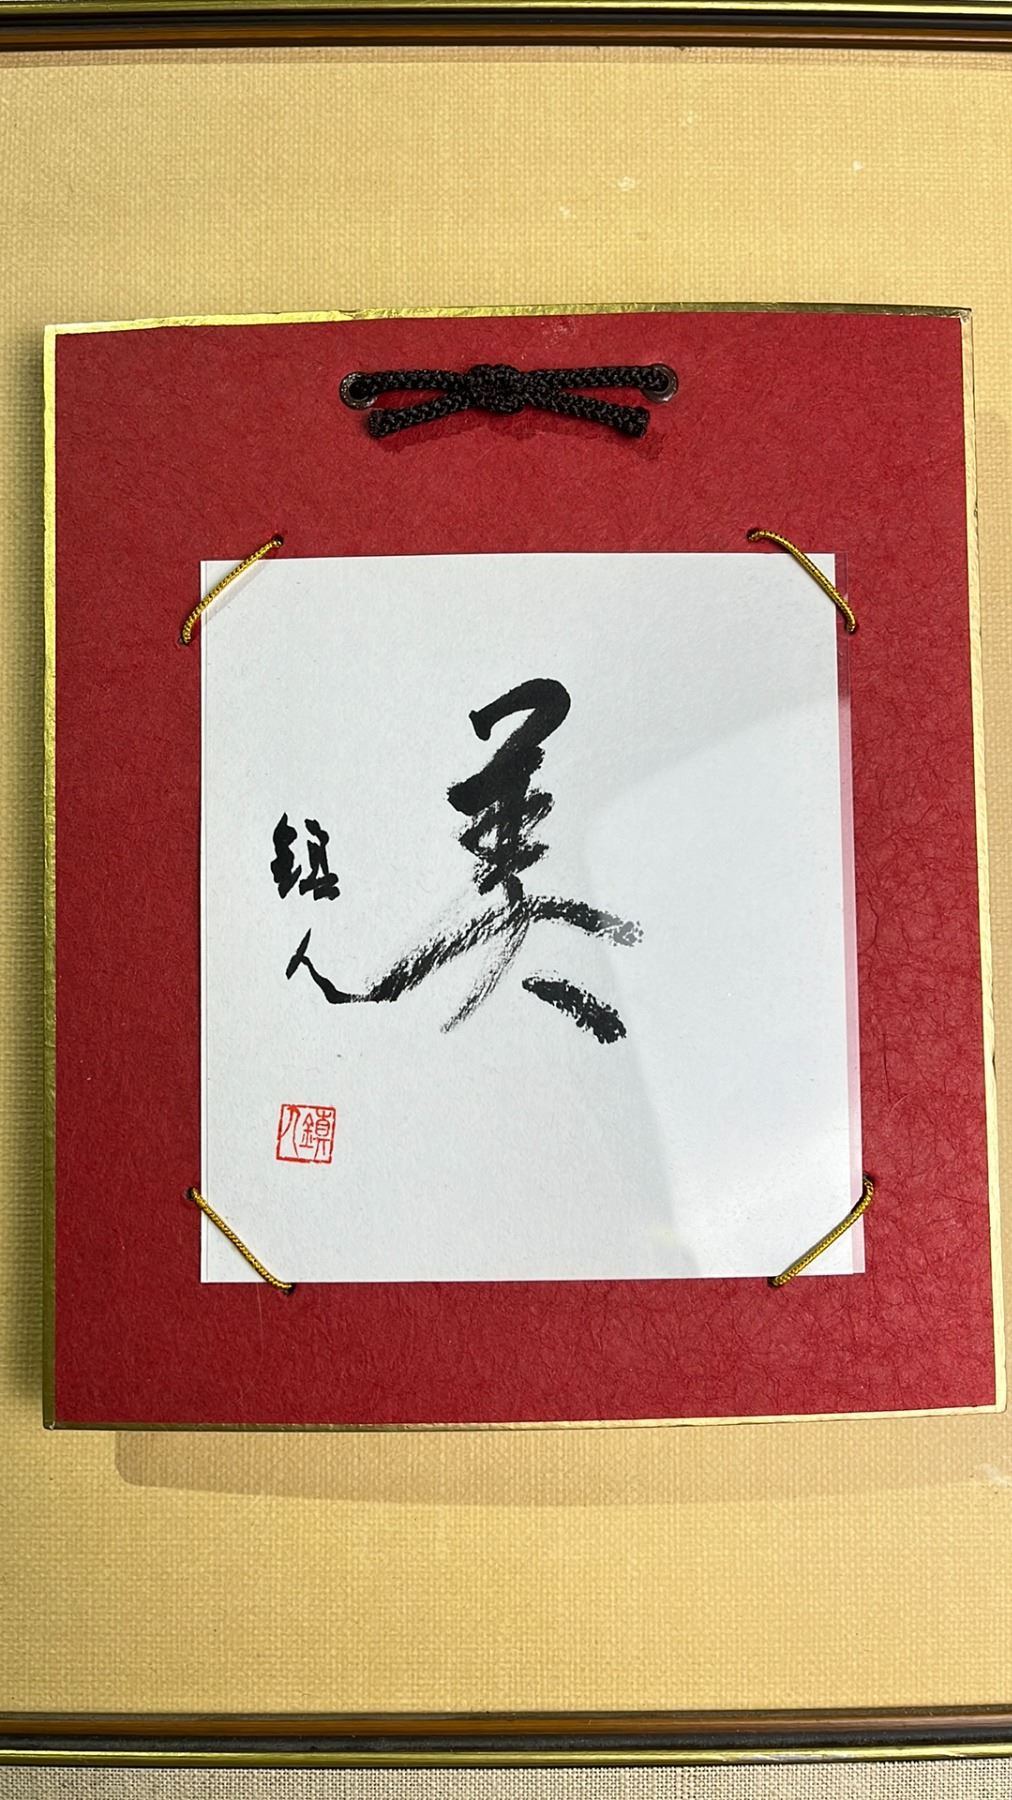 美
鎮人
鎮人